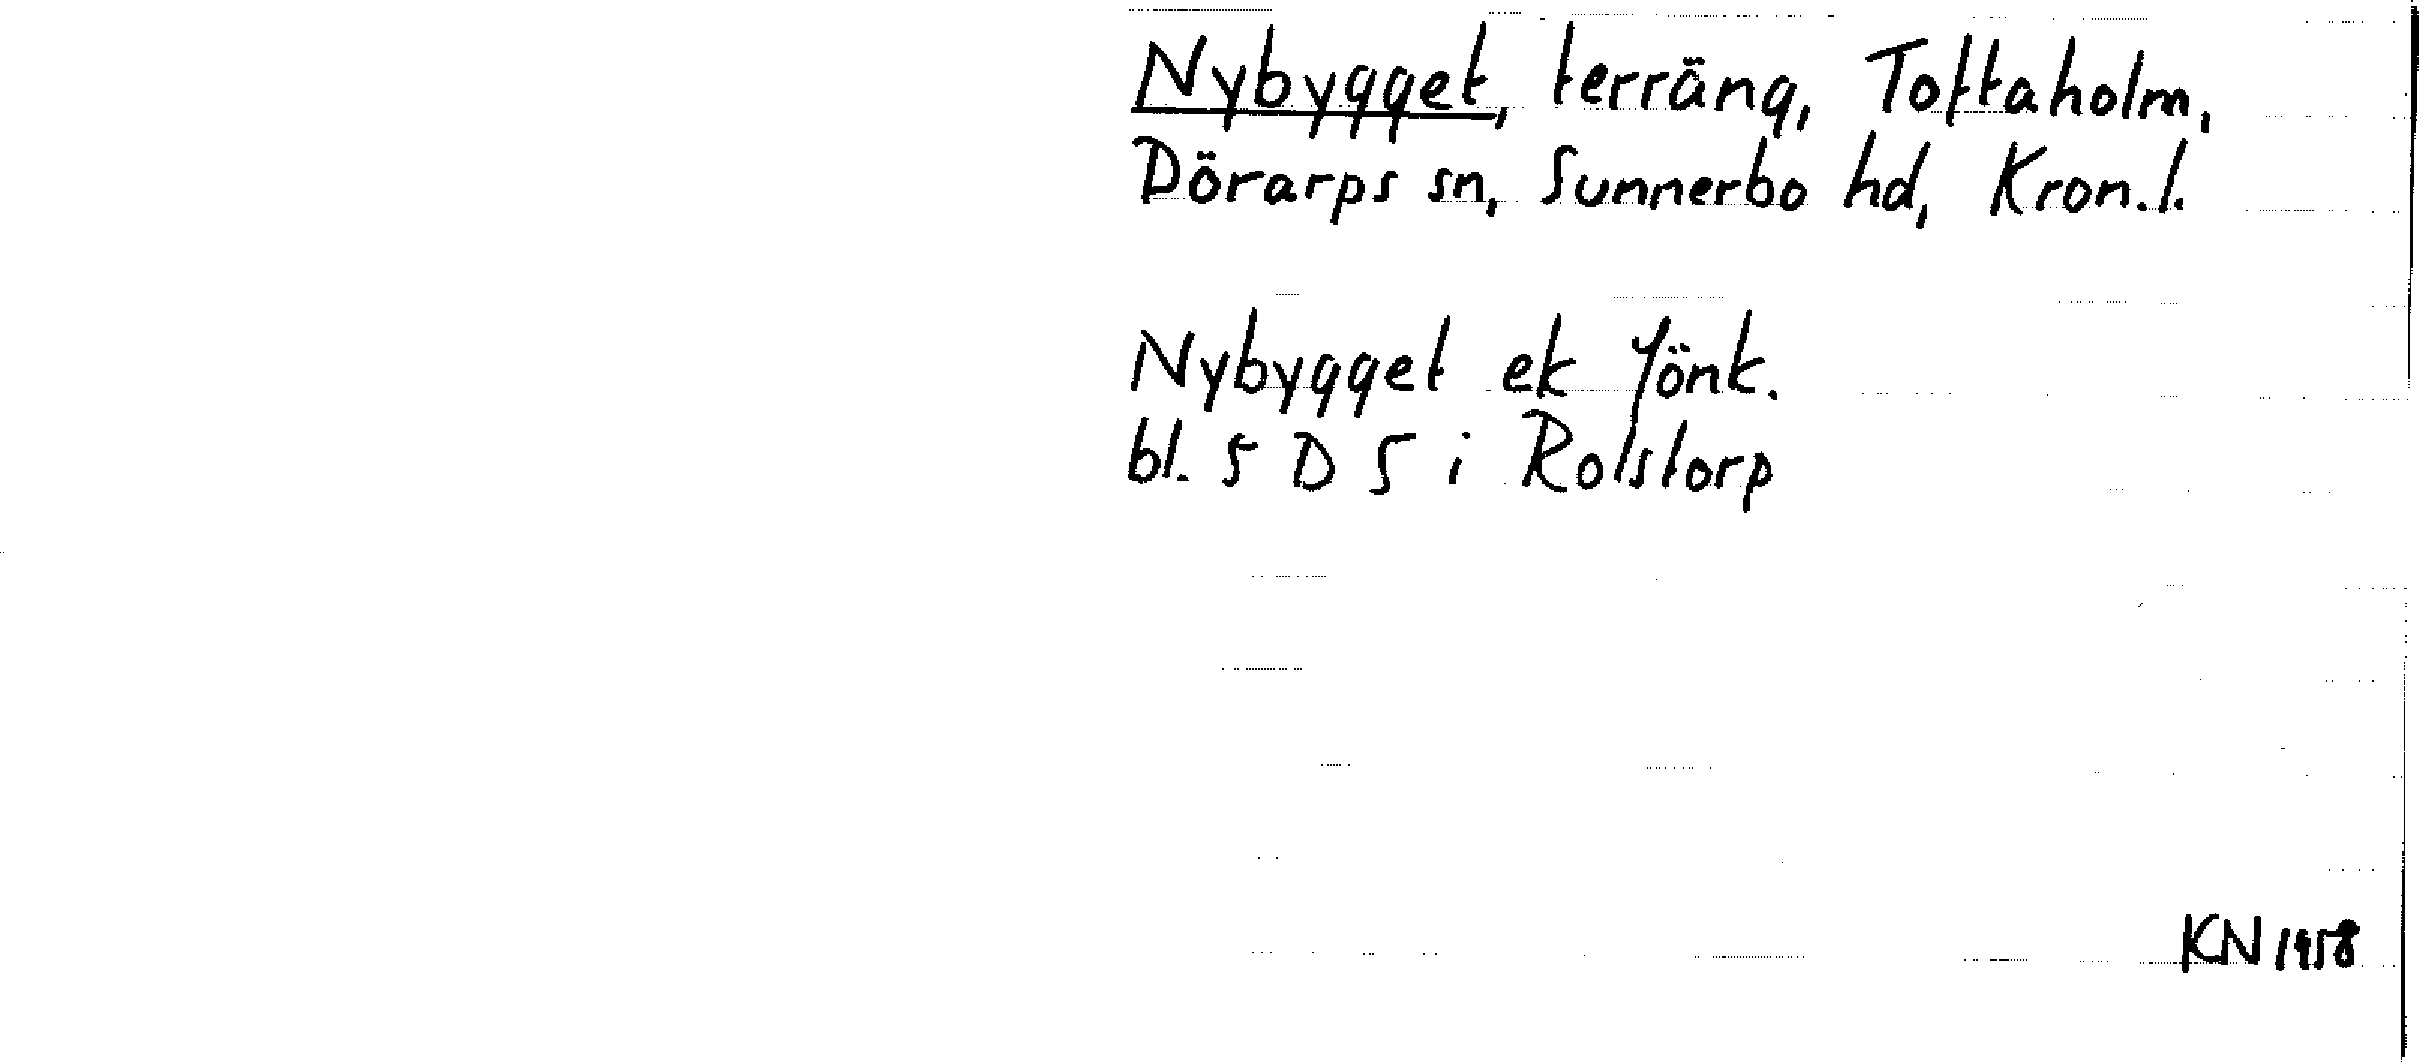 Nybygget, terräng, Toftaholm,
Dörarps sn, Sunnerbo hd, Kron.l.
Nybygget ek Jönk.
bl. 5 D 5 i Rolstorp
KN 1958